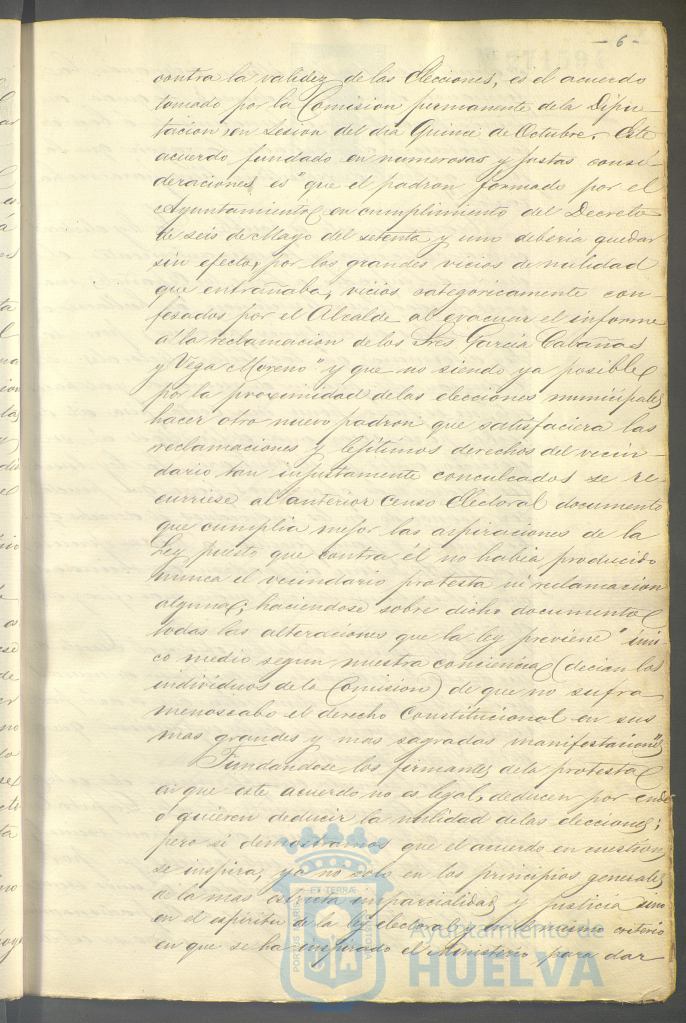 - 6 -
contra la validez de las Elecciones, es el acuerdo
tomado por la Comision permanente dela Dipu-
tacion en Sesion del dia Quince de Octubre. Este
acuerdo fundado en numerosas y justas consi-
deraciones es "que el padron formado por el
Ayuntamiento en cumplimiento del Decreto
de seis de Mayo del setenta y uno deberia quedar
sin efecto, por los grandes vicios de nulidad
que entrañaba, vicios categoricamente con-
fesados por el Alcalde al evacuar el informe
a la reclamacion delos Sres Garcia Cabañas
y Vega Moreno" y que no siendo ya posible
por la proximidad delas elecciones municipales
hacer otro nuevo padron que satisfaciera las
reclamaciones y lejitimos derechos del vecin-
dario tan injustamente conculcados se re-
curriese al anterior Censo Electoral documento
que cumplia mejor las aspiraciones de la
Ley puesto que contra el no habia producido
nunca el vecindario protesta ni reclamacion
alguna; haciendose sobre dicho documento
todas las alteraciones que la ley previene "uni-
co medio segun nuestra conciencia (decian los
individuos dela Comision) de que no sufra
menoscabo el derecho Constitucional en sus
mas grandes y mas sagradas manifestaciones"
Fundandose los firmantes dela protesta
en que este acuerdo no es legal, deducen por ende
ó quieren deducir la nulidad delas elecciones;
pero si demostramos que el acuerdo en cuestion
se inspira ya no solo en los principios generales
de la mas estricta imparcialidad y justicia sino
en el espiritu de la ley electoral y en el mismo criterio
en que se ha inspirado el Ministerio para dar
Ayuntamiento de
HUELVA